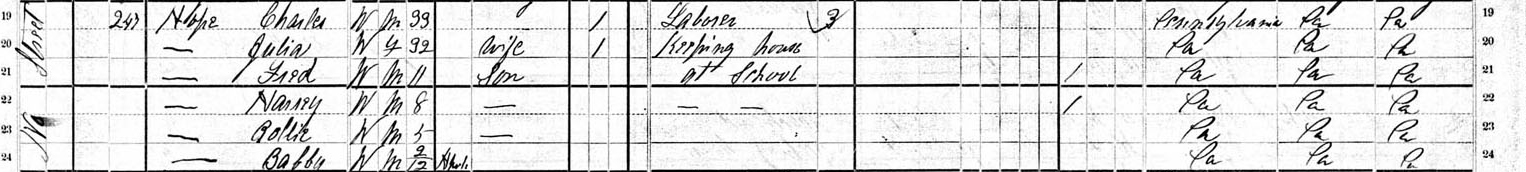 19 247 Hope Charles W M 33 1 Laborer 3 Pennsylvania Pa Pa 19
20 Street — Julia W F 32 Wife 1 Keeping house Pa Pa Pa 20
21 — Fred W M 11 Son at School 1 Pa Pa Pa 21
22 — Harrey W M 8 — — — 1 Pa Pa Pa 22
23 No — W M 5 — Pa Pa Pa 23
24 — Babby W M 2/12 Pa Pa Pa 24